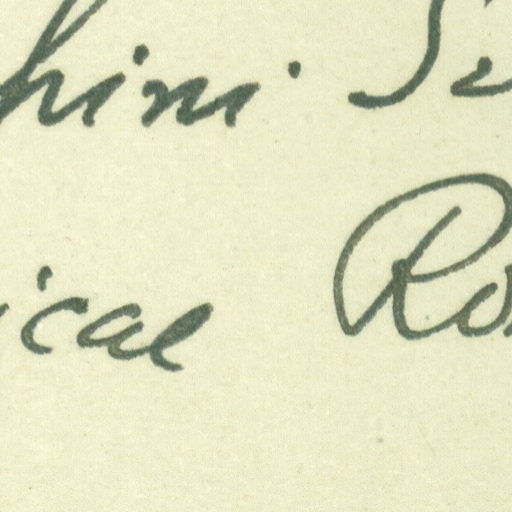 hini Se
ical Ro